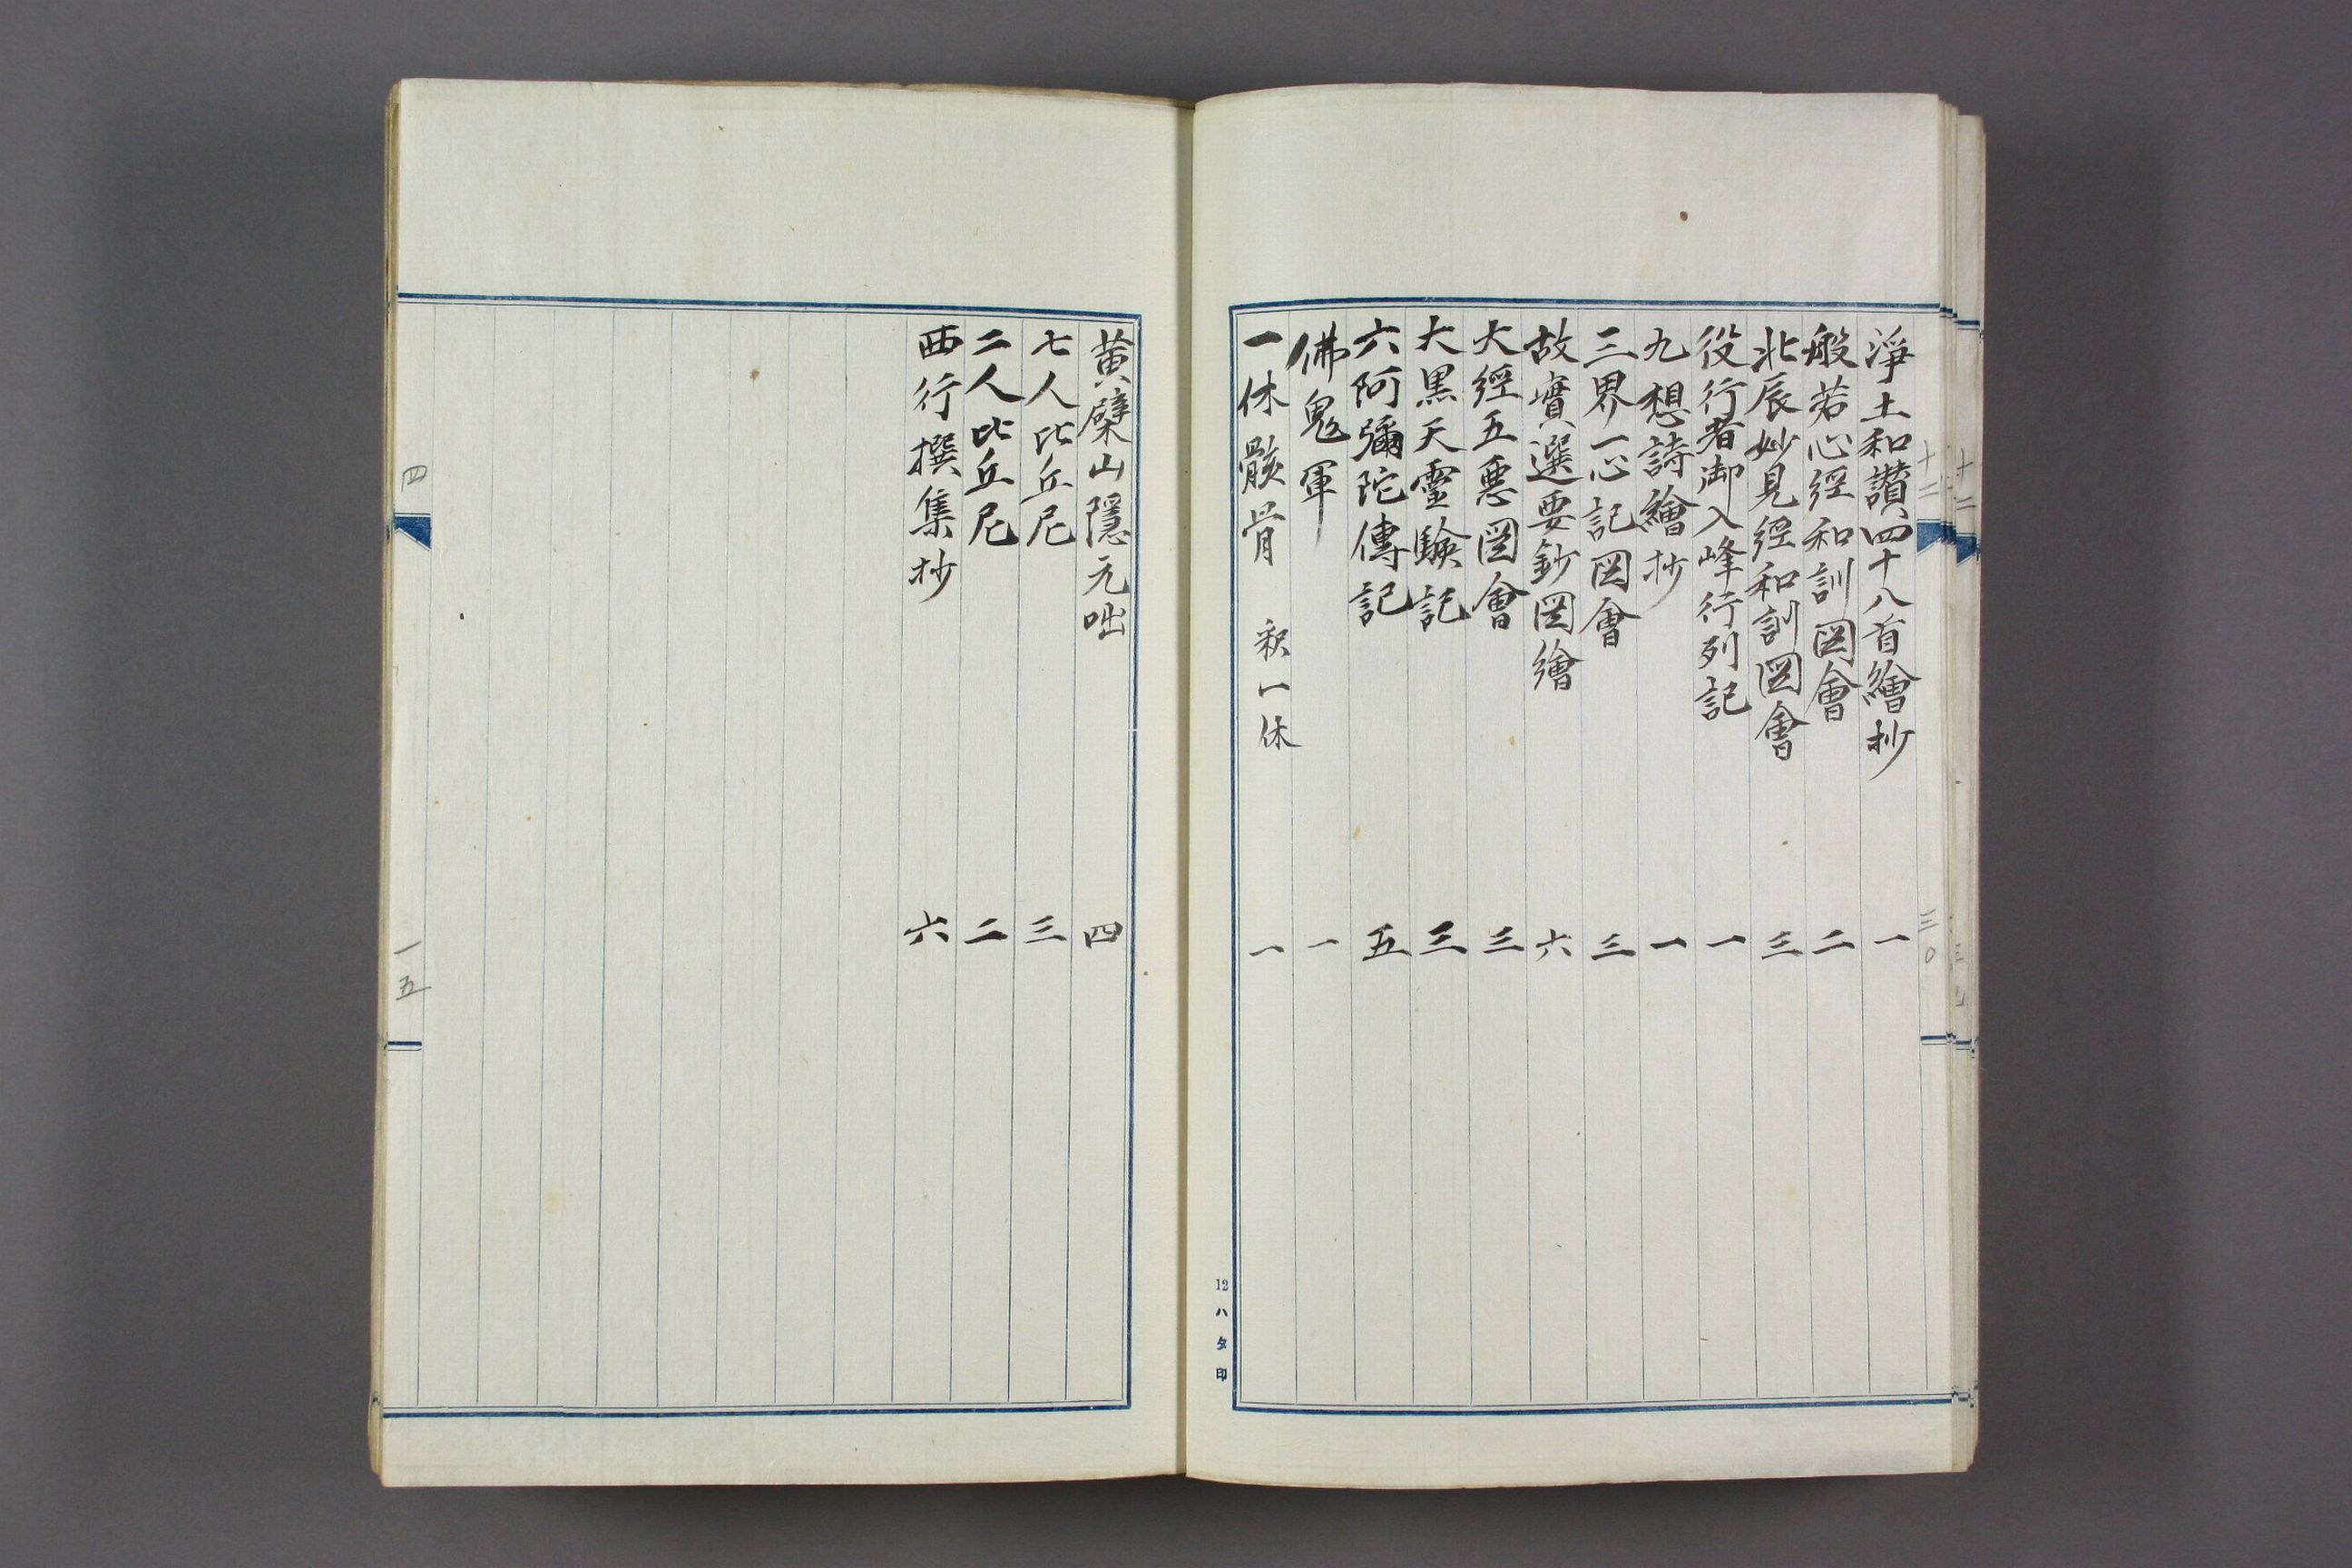 淨土和讃四十八首繪抄 一
般若心經和訓图會 二
北辰妙見經和訓图會 三
役行者御入峰行列記 一
九想詩繪抄 一
三界一心記图會 三
故實選要鈔图繪 六
大經五惡图會 三
大黒天靈驗記 三
六阿彌陀傳記 五
佛鬼軍 一
一休骸骨 釈一休 一
十二
三〇
12ハタ印
黄檗山隱元咄 四
七人比丘尼 三
二人比丘尼 二
西行撰集抄 六
四
一五